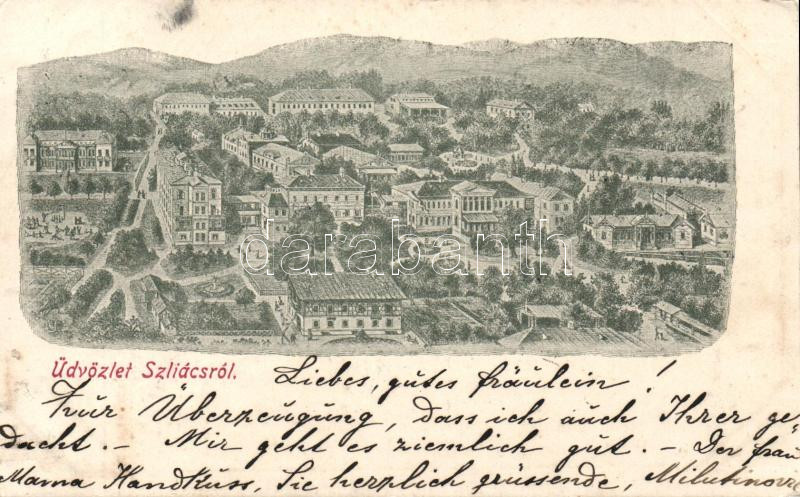 darabanth.com
Üdvözlet Szliácsról.
Liebes, gutes fräulein!
Zur Überzeugung, dass ich auch Ihrer ge"
dacht. - Mir geht es ziemlich gut. - Der frau
Mama Handkuss, Sie herzlich grüssende,